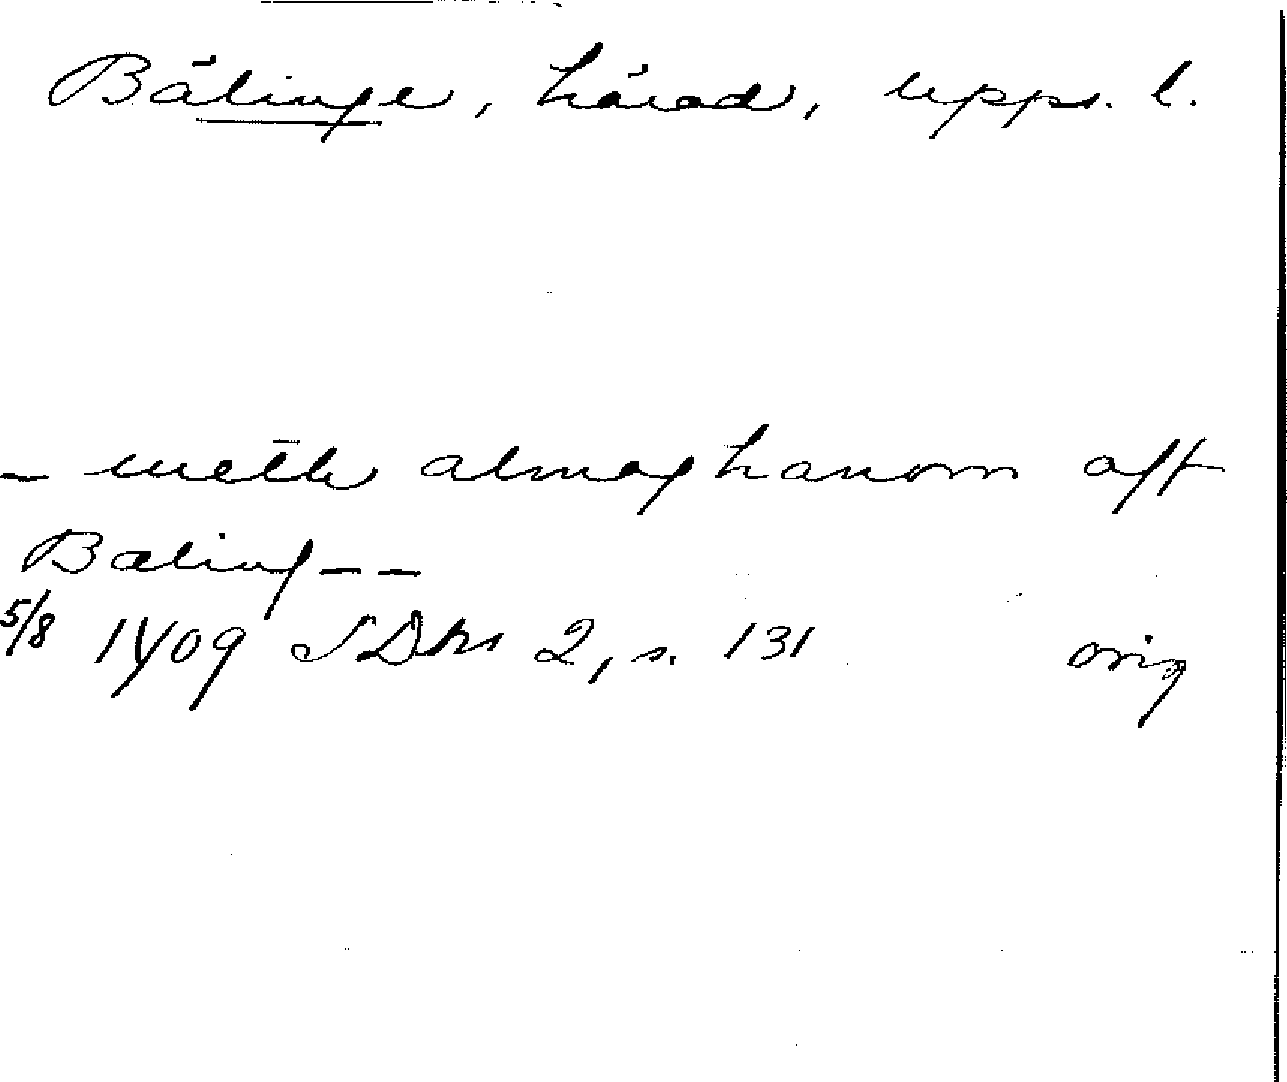 Bälinge, härad, Upps. l.
– meth almoghanom aff
Bæling – –
5/8 1409 SDns 2, s. 131 orig